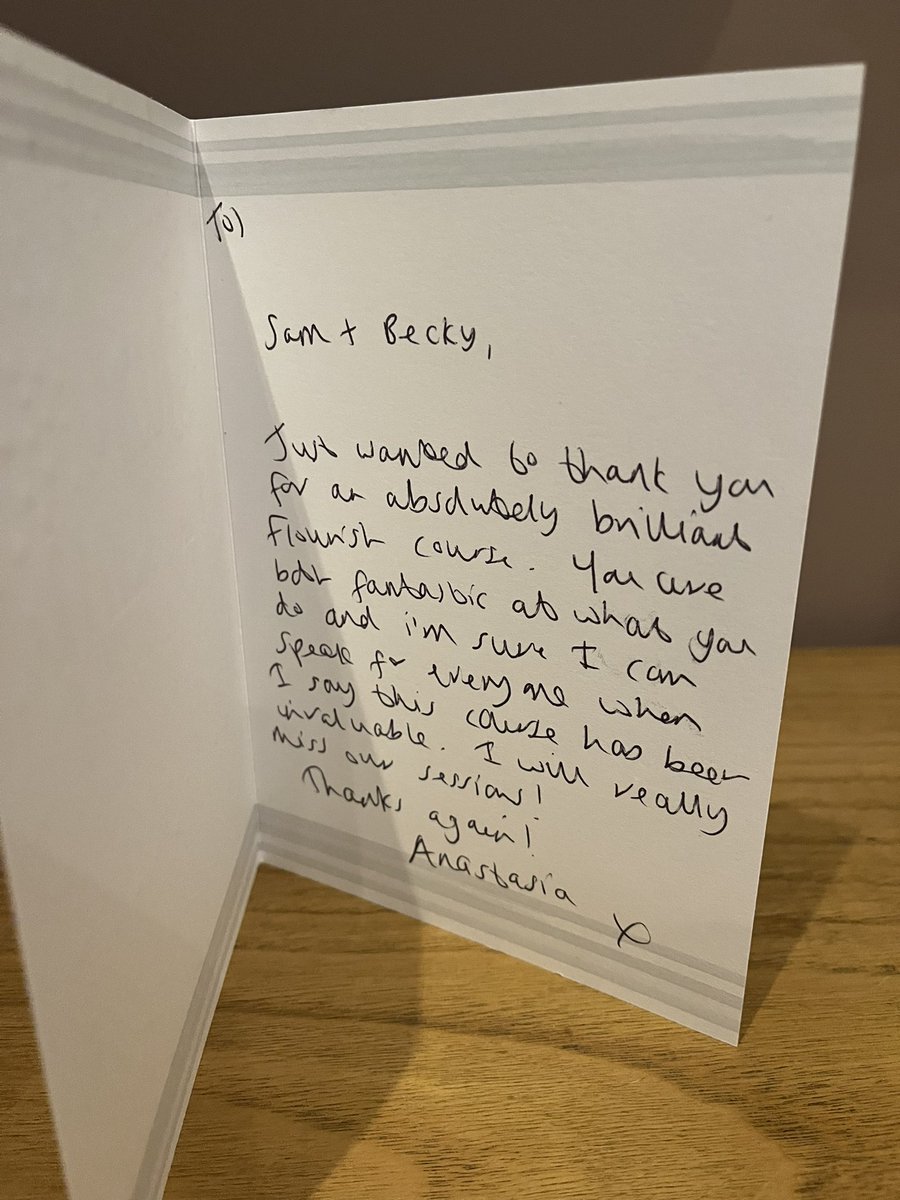 To,
Sam + Becky,
Just wanted to thank you
for an absolutely brilliant
Flourish course. You are
both fantastic at what you
do and i'm sure I can
speak for everyone when
I say this course has been
invaluable. I will really
miss our sessions!
Thanks again!
Anastasia
x